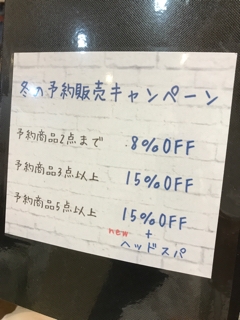 冬の予約販売キャンペーン
予約商品2点まで 8%OFF
予約商品3点以上 15%OFF
予約商品5点以上 15%OFF
NEW +
ヘッドスパ